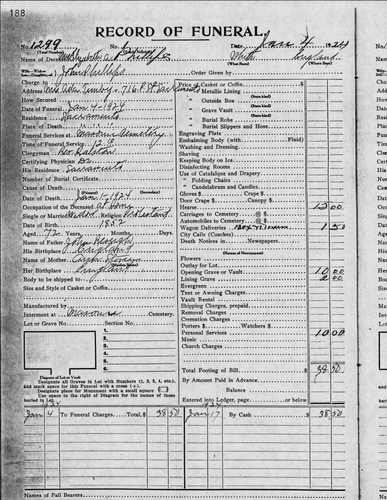 188
RECORD OF FUNERAL.
No. 1299
Date Jan 4 1924
Name of Deceased Phillips
John Phillips Order Given by
Charge to
How Secured
Date of Funeral Jan-4-1924
Residence Sacramento
Place of Death
Funeral Services at Masonic Cemetery
Time of Funeral Service
Clergyman Rev
Certifying Physician Dr.
His Residence Sacramento
Number of Burial Certificate
Cause of Death
(Primary) (Secondary)
Date of Death Jan-1-1924
Occupation of the Deceased At Home
Single or Married Religion
Date of Birth 1852
Aged 72 Years, Months, Days.
Name of Father John
His Birthplace England
Name of Mother
Her Birthplace England
Body to be shipped to
Size and Style of Casket or Coffin
Manufactured by
Interment at Masonic Cemetery.
Lot or Grave No. Section No.
1.
2.
3.
4.
5.
6.
Diagram of Lot or Vault
Designate all Graves in Lot with Numbers (1, 2, 3, 4, etc.),
and mark space for this Funeral with a cross (+).
Designate place for Monument with a small square
Use space to the right of Diagram for the names of those
buried in Lot.
Price of Casket or Coffin
" Metallic Lining
(State kind)
" Outside Box
(State kind)
" Grave Vault
(State kind)
" Burial Robe
(State kind)
" Burial Slippers and Hose
Engraving Plate
Embalming Body (with Fluid)
Washing and Dressing
Shaving
Keeping Body on Ice
Disinfecting Rooms
Use of Catafalque and Drapery
" Folding Chairs
" Candelabrum and Candles
Gloves $ Crape $
Door Crape $ Canopy $
Hearse 15 00
Carriages to Cemetery @ $
Automobiles to Cemetery @ $
Wagon Deliveries 1 50
City Calls (Coaches)
Death Notices in Newspapers
(Names of Newspapers)
Flowers
Outlay for Lot
Opening Grave or Vault 10 00
Lining Grave 2 00
Evergreen
Tent or Awning Charges
Vault Rental
Shipping Charges, prepaid
Removal Charges
Cremation Charges
Porters $ Watchers $
Personal Services 10 00
Music
Church Charges
Total Footing of Bill 38 50
By Amount Paid in Advance
Balance
Entered into Ledger, page or below
1924 1924
Jan 4 To Funeral Charges, Total, $ 38 50 Jan 17 By Cash $ 38 50
Names of Pall Bearers